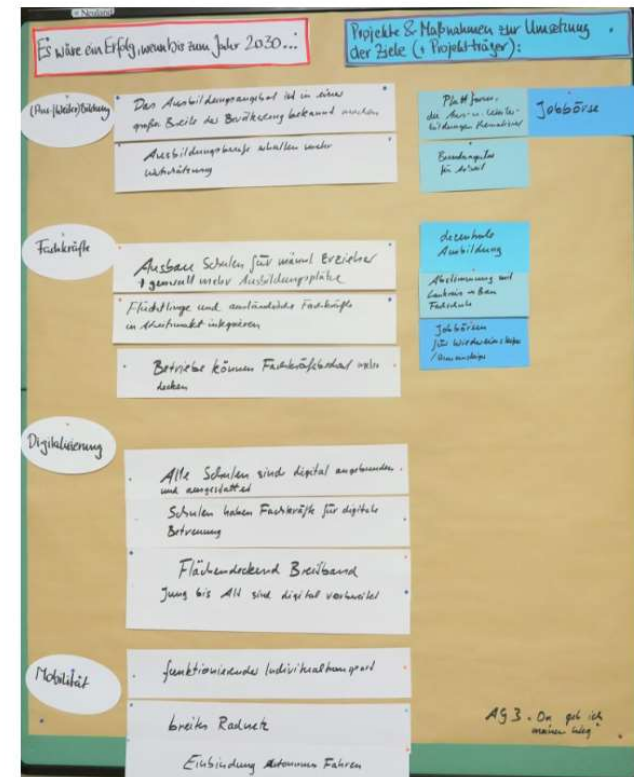 Neuland
Es wäre ein Erfolg, wenn bis zum Jahr 2030...
Projekte & Maßnahmen zur Umsetzung
der Ziele (+ Projektträger):
(Aus-/Weiter)Bildung
Das Ausbildungsangebot ist in einer
großen Breite der Bevölkerung bekannt
Ausbildungsberufe erhalten mehr
Wertschätzung
Plattform,
die Aus- u. Weiter-
bildungen
Jobbörse
für
Fachkräfte
Ausbau Schulen für männl Erzieher
+ generell mehr Ausbildungsplätze
Flüchtlinge und ausländische Fachkräfte
in Arbeitsmarkt integrieren
Betriebe können Fachkräftebedarf
decken
dezentrale
Ausbildung
Abstimmung mit
Landkreis
Fachschule
Jobbörsen
für Wiedereinsteiger
Digitalisierung
Alle Schulen sind digital angebunden
und ausgestattet
Schulen haben Fachkräfte für digitale
Betreuung
Flächendeckend Breitband
Jung bis Alt sind digital vorbereitet
Mobilität
funktionierender Individualtransport
breites Radnetz
Einbindung autonomes Fahren
AG 3
ich
meinen Weg"